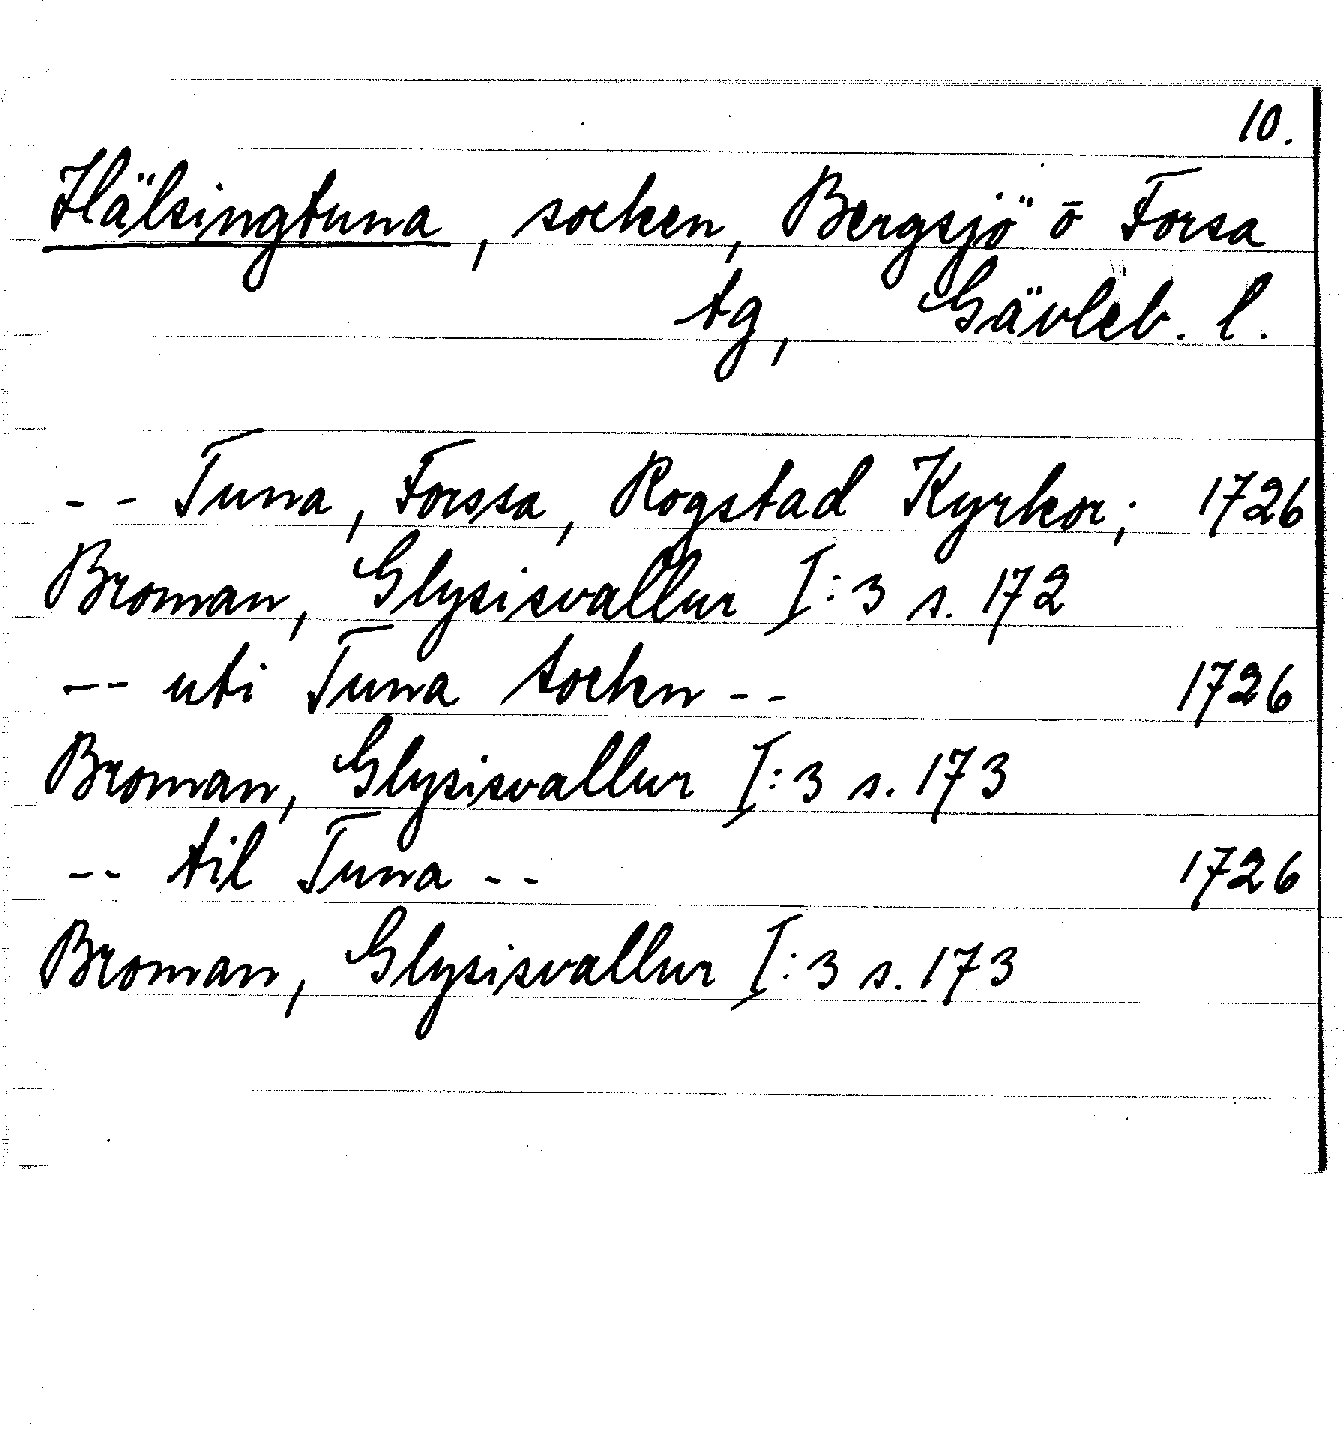 10.
Hälsingtuna, socken, Bergsjö ō Forsa
tg, Gävleb. l.
-- Tuna, Forssa, Rogstad Kyrkor; 1726
Broman, Glysisvallur I:3 s. 172
-- uti Tuna sockn -- 1726
Broman, Glysisvallur I:3 s. 173
-- til Tuna -- 1726
Broman, Glysisvallur I:3 s. 173